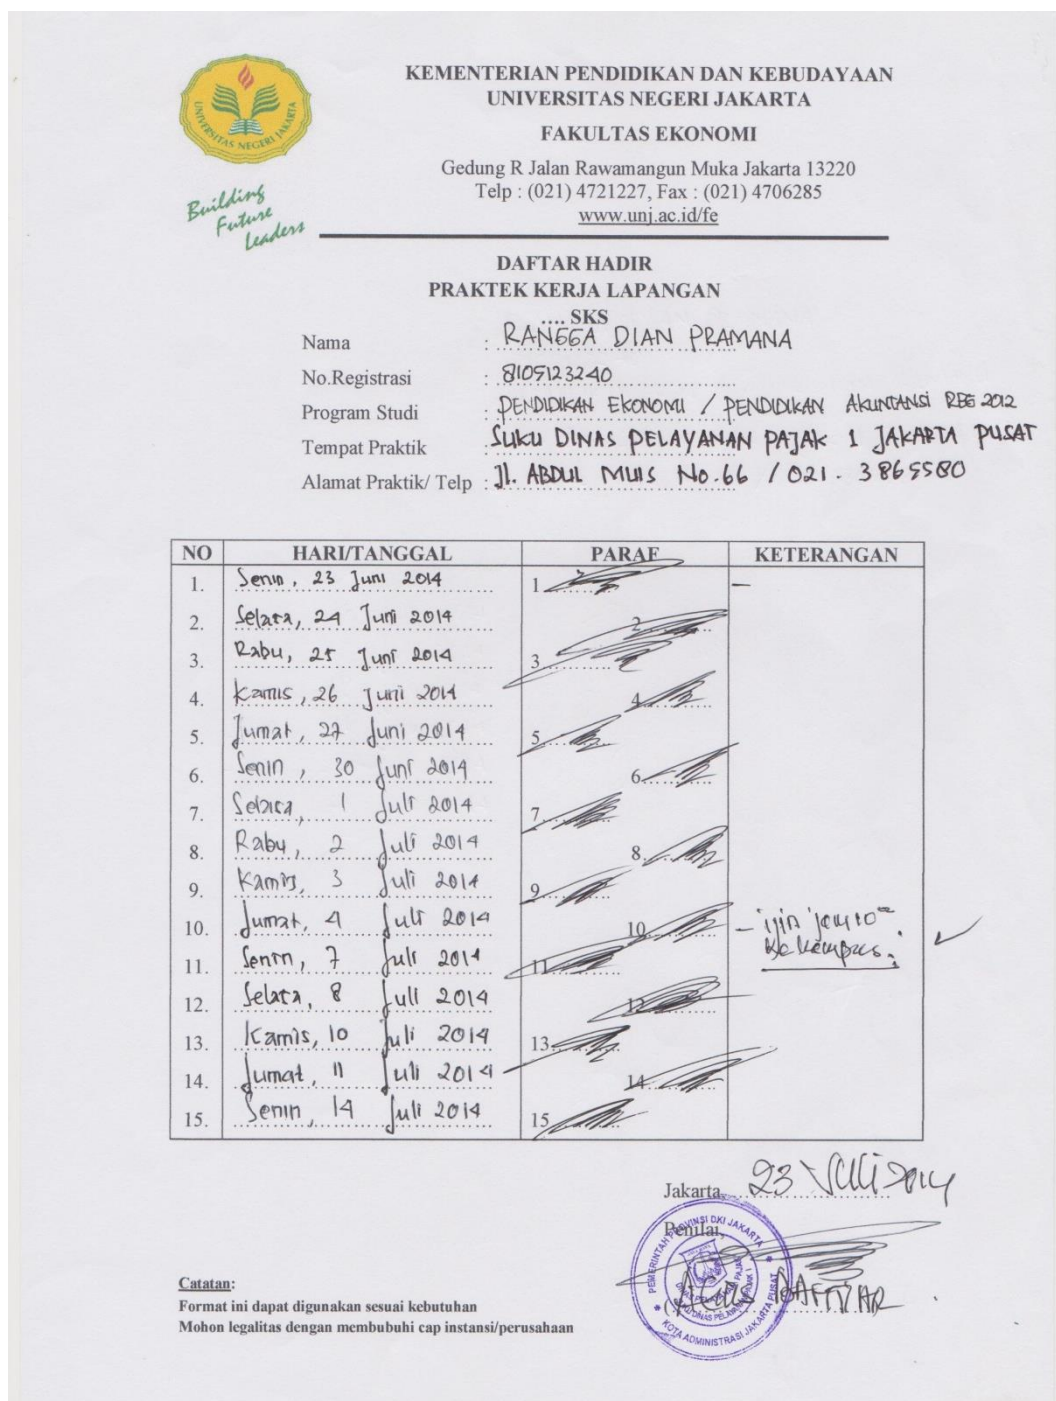 KEMENTERIAN PENDIDIKAN DAN KEBUDAYAAN
UNIVERSITAS NEGERI JAKARTA
FAKULTAS EKONOMI
Gedung R Jalan Rawamangun Muka Jakarta 13220
Telp : (021) 4721227, Fax : (021) 4706285
www.unj.ac.id/fe
UNIVERSITAS NEGERI JAKARTA
Building
Future
Leaders
DAFTAR HADIR
PRAKTEK KERJA LAPANGAN
.... SKS
Nama : RANGGA DIAN PRAMANA
No.Registrasi : 8105123240
Program Studi : PENDIDIKAN EKONOMI / PENDIDIKAN AKUNTANSI REG 2012
Tempat Praktik SUKU DINAS PELAYANAN PAJAK 1 JAKARTA PUSAT
Alamat Praktik/ Telp : Jl. ABDUL MUIS No.66 / 021. 3865580
NO HARI/TANGGAL PARAF KETERANGAN
1. Senin, 23 Juni 2014 1 -
2. Selasa, 24 Juni 2014 2
3. Rabu, 25 Juni 2014 3
4. Kamis, 26 Juni 2014 4
5. Jumat, 27 Juni 2014 5
6. Senin, 30 Juni 2014 6
7. Selasa, 1 Juli 2014 7
8. Rabu, 2 Juli 2014 8
9. Kamis, 3 Juli 2014 9
10. Jumat, 4 Juli 2014 10 - ijin jam 10 ke kampus.
11. Senin, 7 Juli 2014 11
12. Selasa, 8 Juli 2014 12
13. Kamis, 10 Juli 2014 13
14. Jumat, 11 Juli 2014 14
15. Senin, 14 Juli 2014 15
Jakarta, 23 Juli 2014
Penilai,
PEMERINTAH PROVINSI DKI JAKARTA
KOTA ADMINISTRASI JAKARTA PUSAT
Catatan:
Format ini dapat digunakan sesuai kebutuhan
Mohon legalitas dengan membubuhi cap instansi/perusahaan